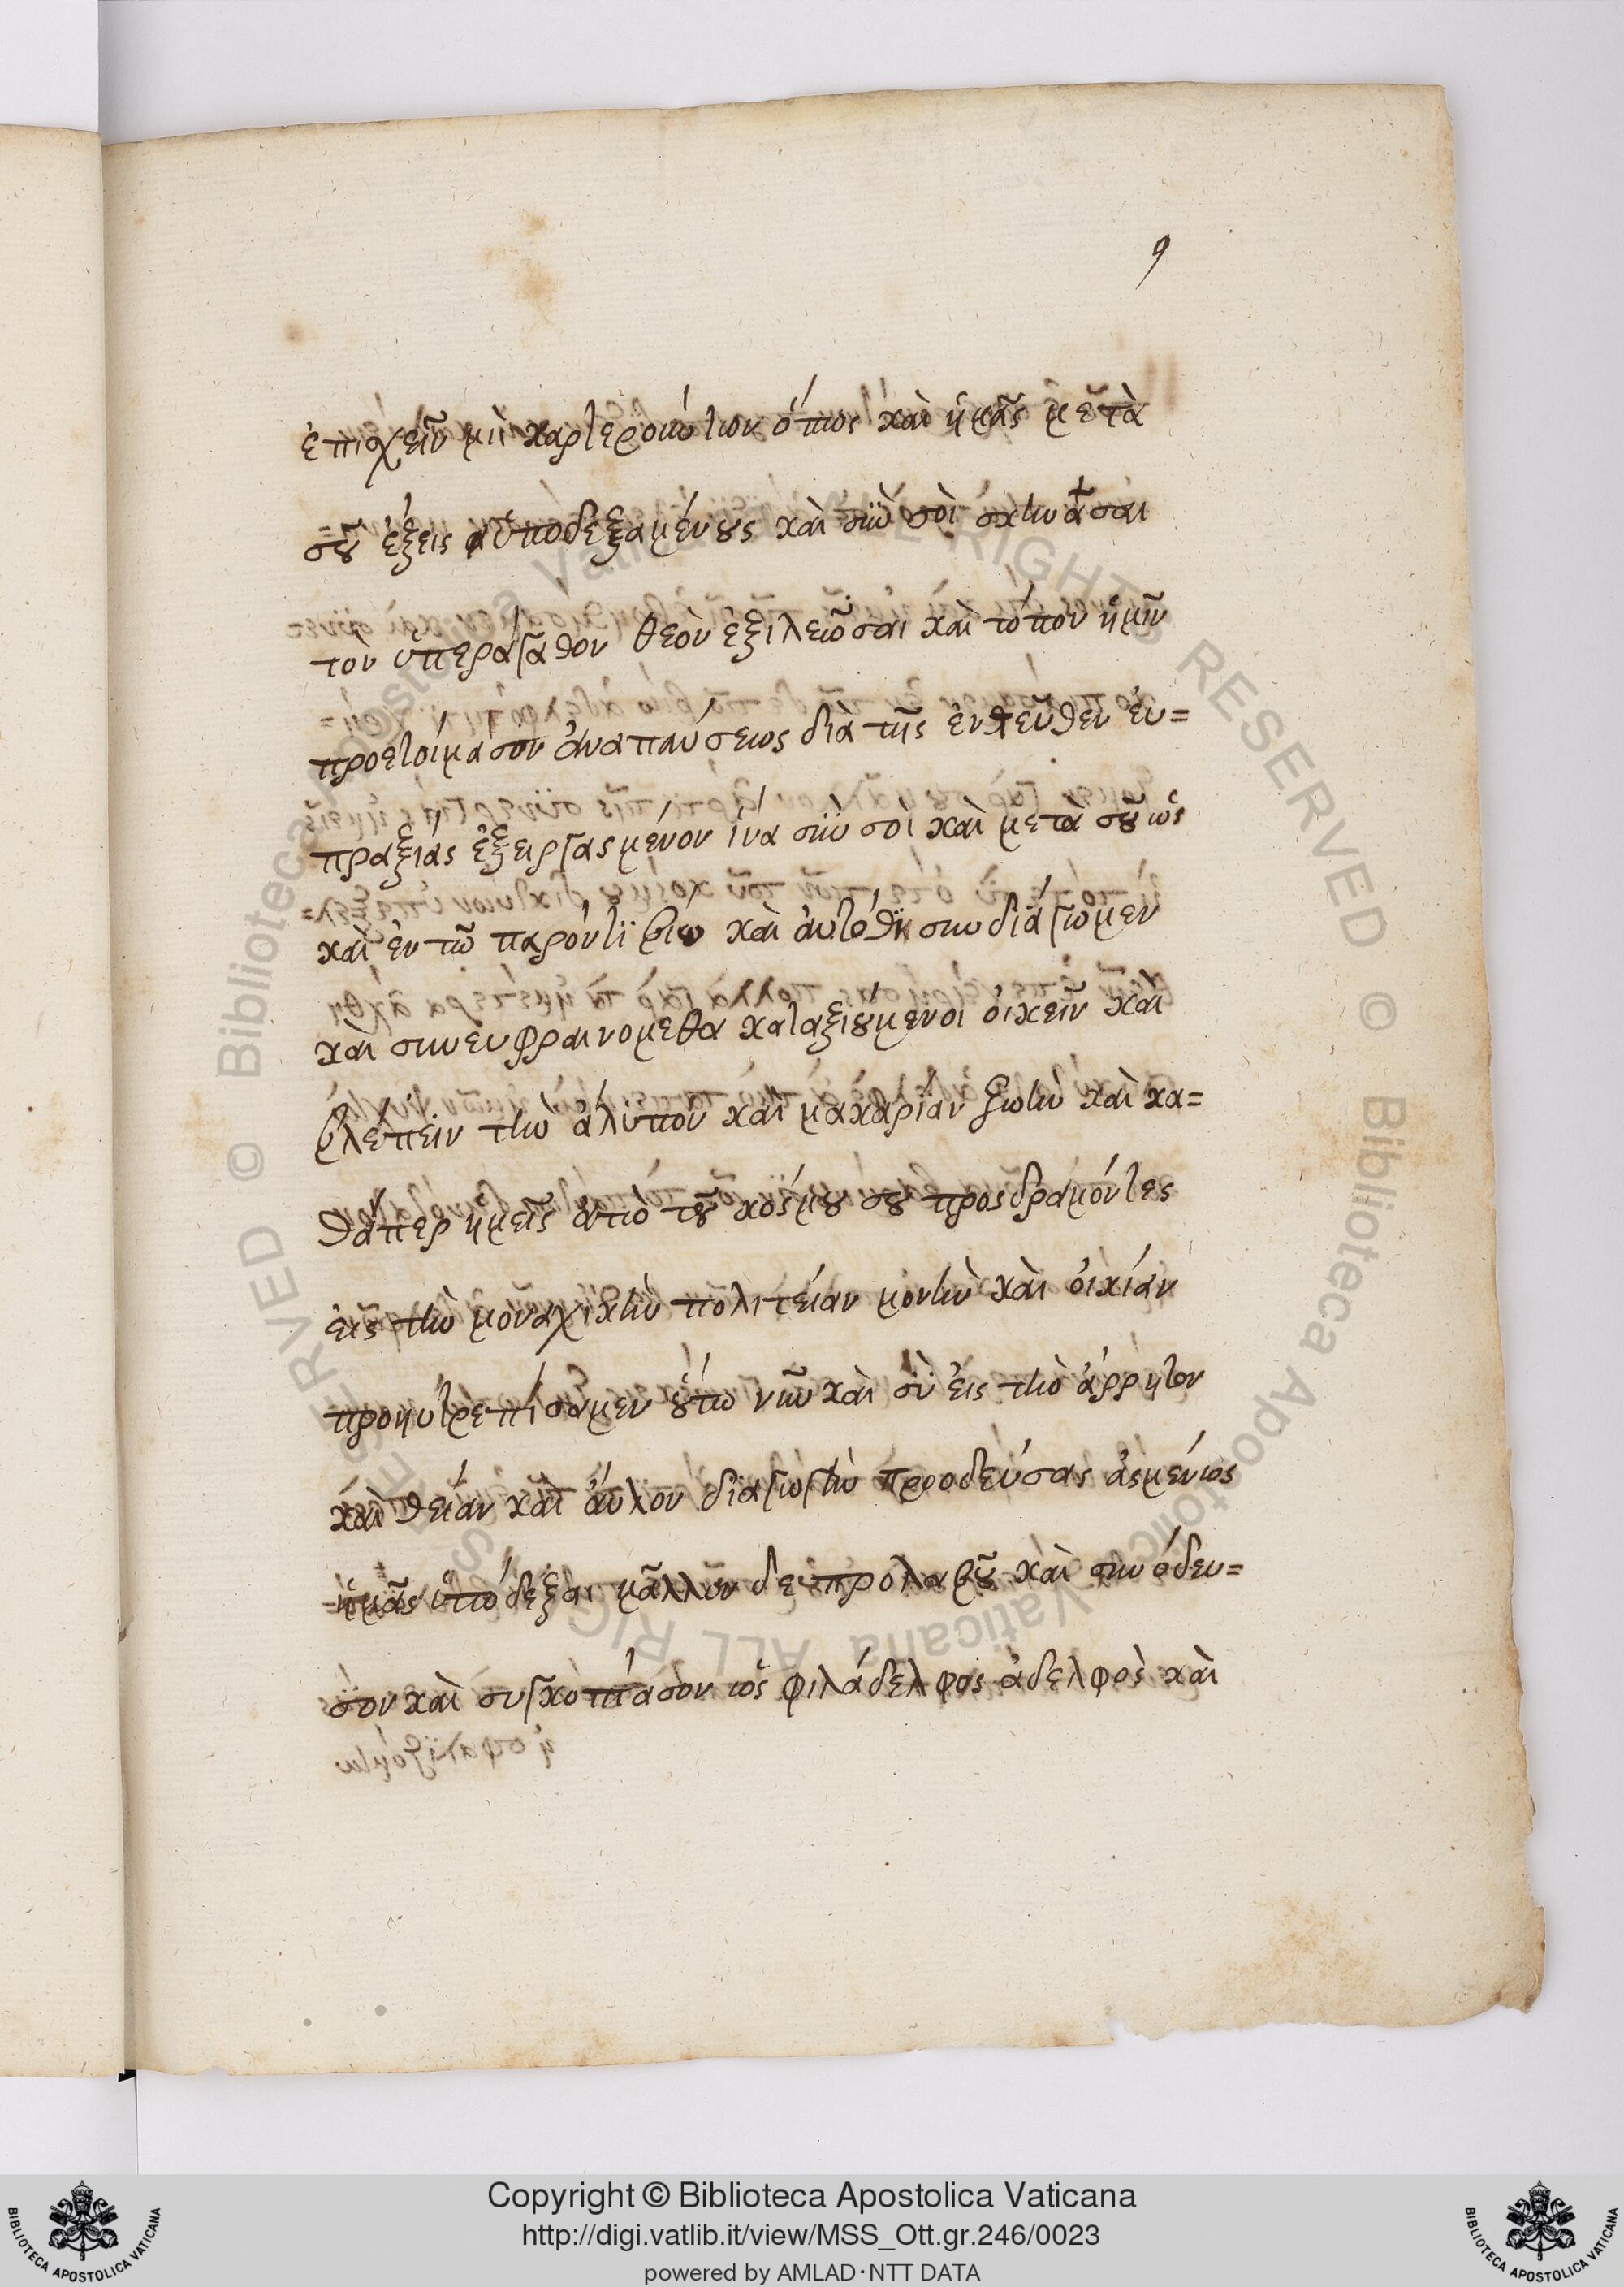 9
ἐπισχεῖν μὴ καρτερούντων ὅπως καὶ ἡμᾶς μετὰ
σοῦ ἕξεις ὑποδεξαμένους καὶ σὺν σοὶ σκηνᾶσαι
τὸν ὑπεράγαθον θεὸν ἐξιλεῶσαι καὶ τόπον ἡμῖν
προετοίμασον ἀναπαύσεως διὰ τῆς ἐντεῦθεν εὐ=
πραξίας ἐξειργασμένον ἵνα σὺν σοὶ καὶ μετὰ σοῦ ὡς
καὶ ἐν τῷ παρόντι βίῳ καὶ αὐτόθι συνδιάγωμεν
καὶ συνευφραινομεθα καταξιούμενοι οἰκεῖν καὶ
βλέπειν τὴν ἄλυπον καὶ μακαρίαν ζωὴν καὶ κα=
θάπερ ἡμεῖς ἀπὸ τοῦ κόσμου σου προσδραμόντες
εἰς τὴν μοναχικὴν πολιτείαν μονὴν καὶ οἰκίαν
προηυτρεπίσαμεν οὕτω νῦν καὶ σὺ εἰς τὴν ἄρρητον
καὶ θείαν καὶ ἄυλον διαγωγὴν προοδεύσας ἀσμένως
ἡμᾶς ὑπόδεξαι μᾶλλον δὲ προλαβοῦ καὶ συνόδευ=
σον καὶ συγκοπίασον ὡς φιλάδελφος ἀδελφὸς καὶ
Copyright © Biblioteca Apostolica Vaticana
http://digi.vatlib.it/view/MSS_Ott.gr.246/0023
powered by AMLAD·NTT DATA
BIBLIOTECA APOSTOLICA VATICANA
BIBLIOTECA APOSTOLICA VATICANA
© Biblioteca Apostolica Vaticana ALL RIGHTS RESERVED © Biblioteca Apostolica Vaticana ALL RIGHTS RESERVED